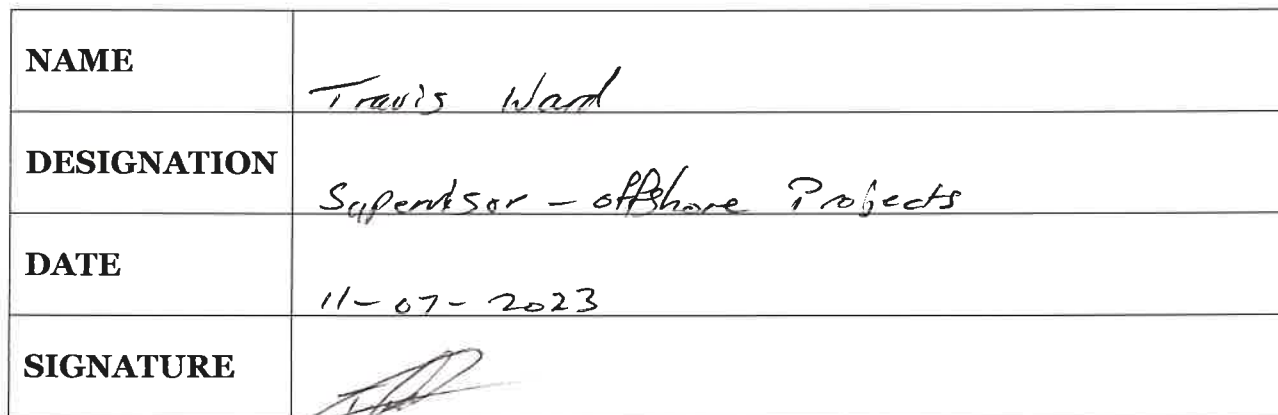 NAME Travis Ward
DESIGNATION Supervisor - offshore Projects
DATE 11-07-2023
SIGNATURE